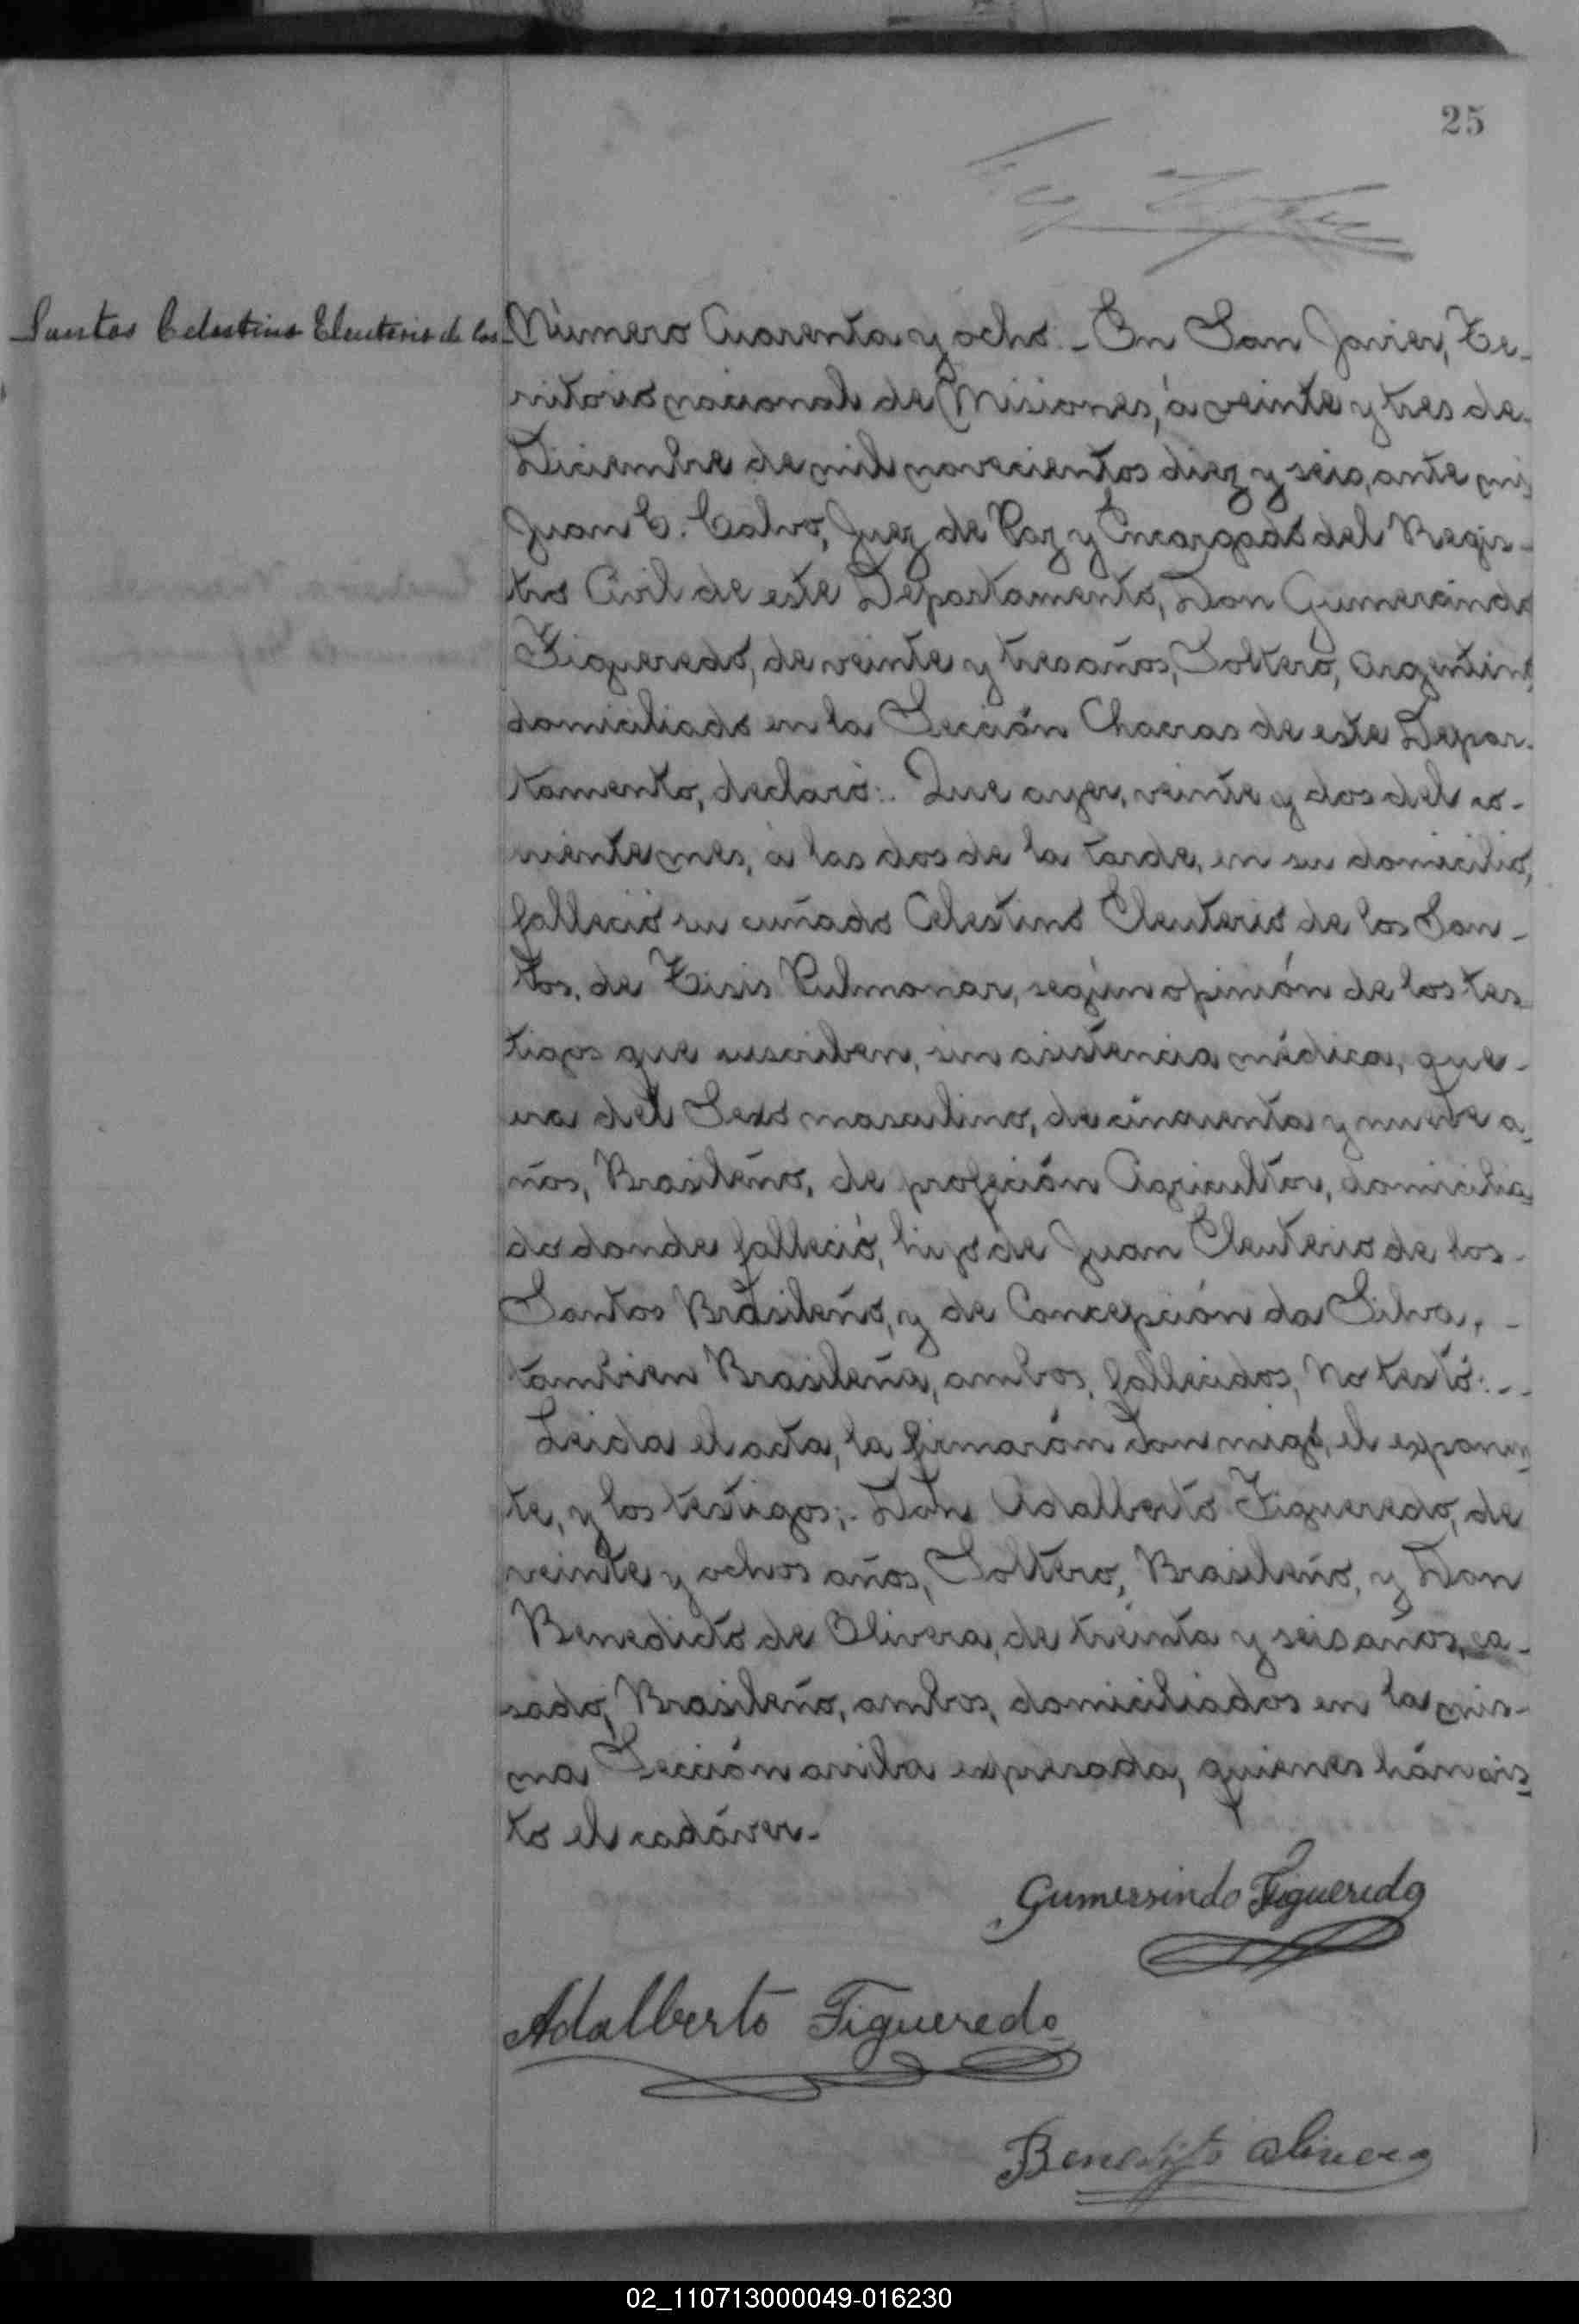 25
Santos Celestino Eleuterio de los
Número Cuarenta y ocho:_ En San Javier, Te-
rritorio nacional de Misiones, á veinte y tres de
Diciembre de mil novecientos diez y seis, ante mi
Juan C. Calvo, Juez de Paz y Encargado del Regis-
tro Civil de este Departamento, Don Gumersindo
Figueredo, de veinte y tres años, Soltero, Argentino
domiciliado en la Sección Chacras de este Depar-
tamento, declaró:. Que ayer, veinte y dos del co-
rriente mes, á las dos de la tarde, en su domicilio,
falleció su cuñado Celestino Eleuterio de los San-
tos, de Tisis Pulmonar, según opinión de los tes
tigos que suscriben, sin asistencia médica, que-
era del Sexo masculino, de cincuenta y nueve a-
ños, Brasileño, de profeción Agricultor, domicilia-
do donde falleció, hijo de Juan Eleuterio de los-
Santos Brasileño, y de Concepción da Silva, -
tambien Brasileña, ambos, fallecidos, No testó:--
Leida el acta, la firmarón conmigo, el exponen
te, y los testigos;. Don Adalberto Figueredo, de
veinte y ochos años, Soltero, Brasileño, y Don
Benedicto de Olivera, de treinta y seis años, ca-
sado, Brasileño, ambos, domiciliados en la mis-
ma Sección arriba expresada, quienes hán vis-
to el cadáver.-
Gumersindo Figueredo
Adalberto Figueredo
Benedito Olivera
02_110713000049-016230